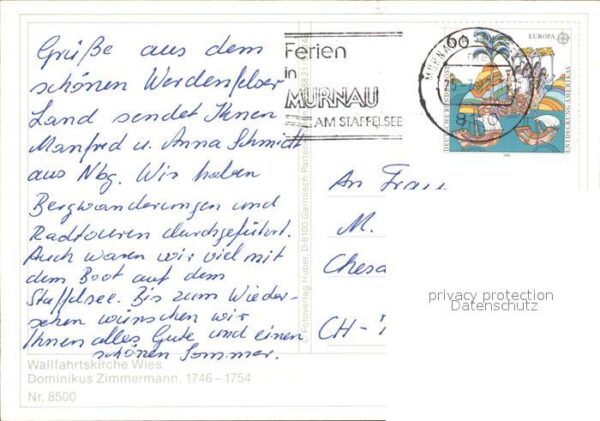 Grüße aus dem
schönen Werdenfelser
Land sendet Ihnen
Manfred u. Anna Schmidt
aus Nbg. Wir haben
Bergwanderungen und
Radtouren durchgeführt.
Auch waren wir viel mit
dem Boot auf dem
Staffelsee. Bis zum Wieder-
sehen wünschen wir
Ihnen alles Gute und einen
schönen Sommer.
Wallfahrtskirche Wies
Dominikus Zimmermann, 1746 – 1754
Nr. 8500
Fotoverlag Huber, D-8100 Garmisch-Parten
Ferien
in
MURNAU
AM STAFFELSEE
MURNAU
EUROPA
60
ENTDECKUNG AMERIKAS
An Frau
M.
Chesa
CH-
privacy protection
Datenschutz